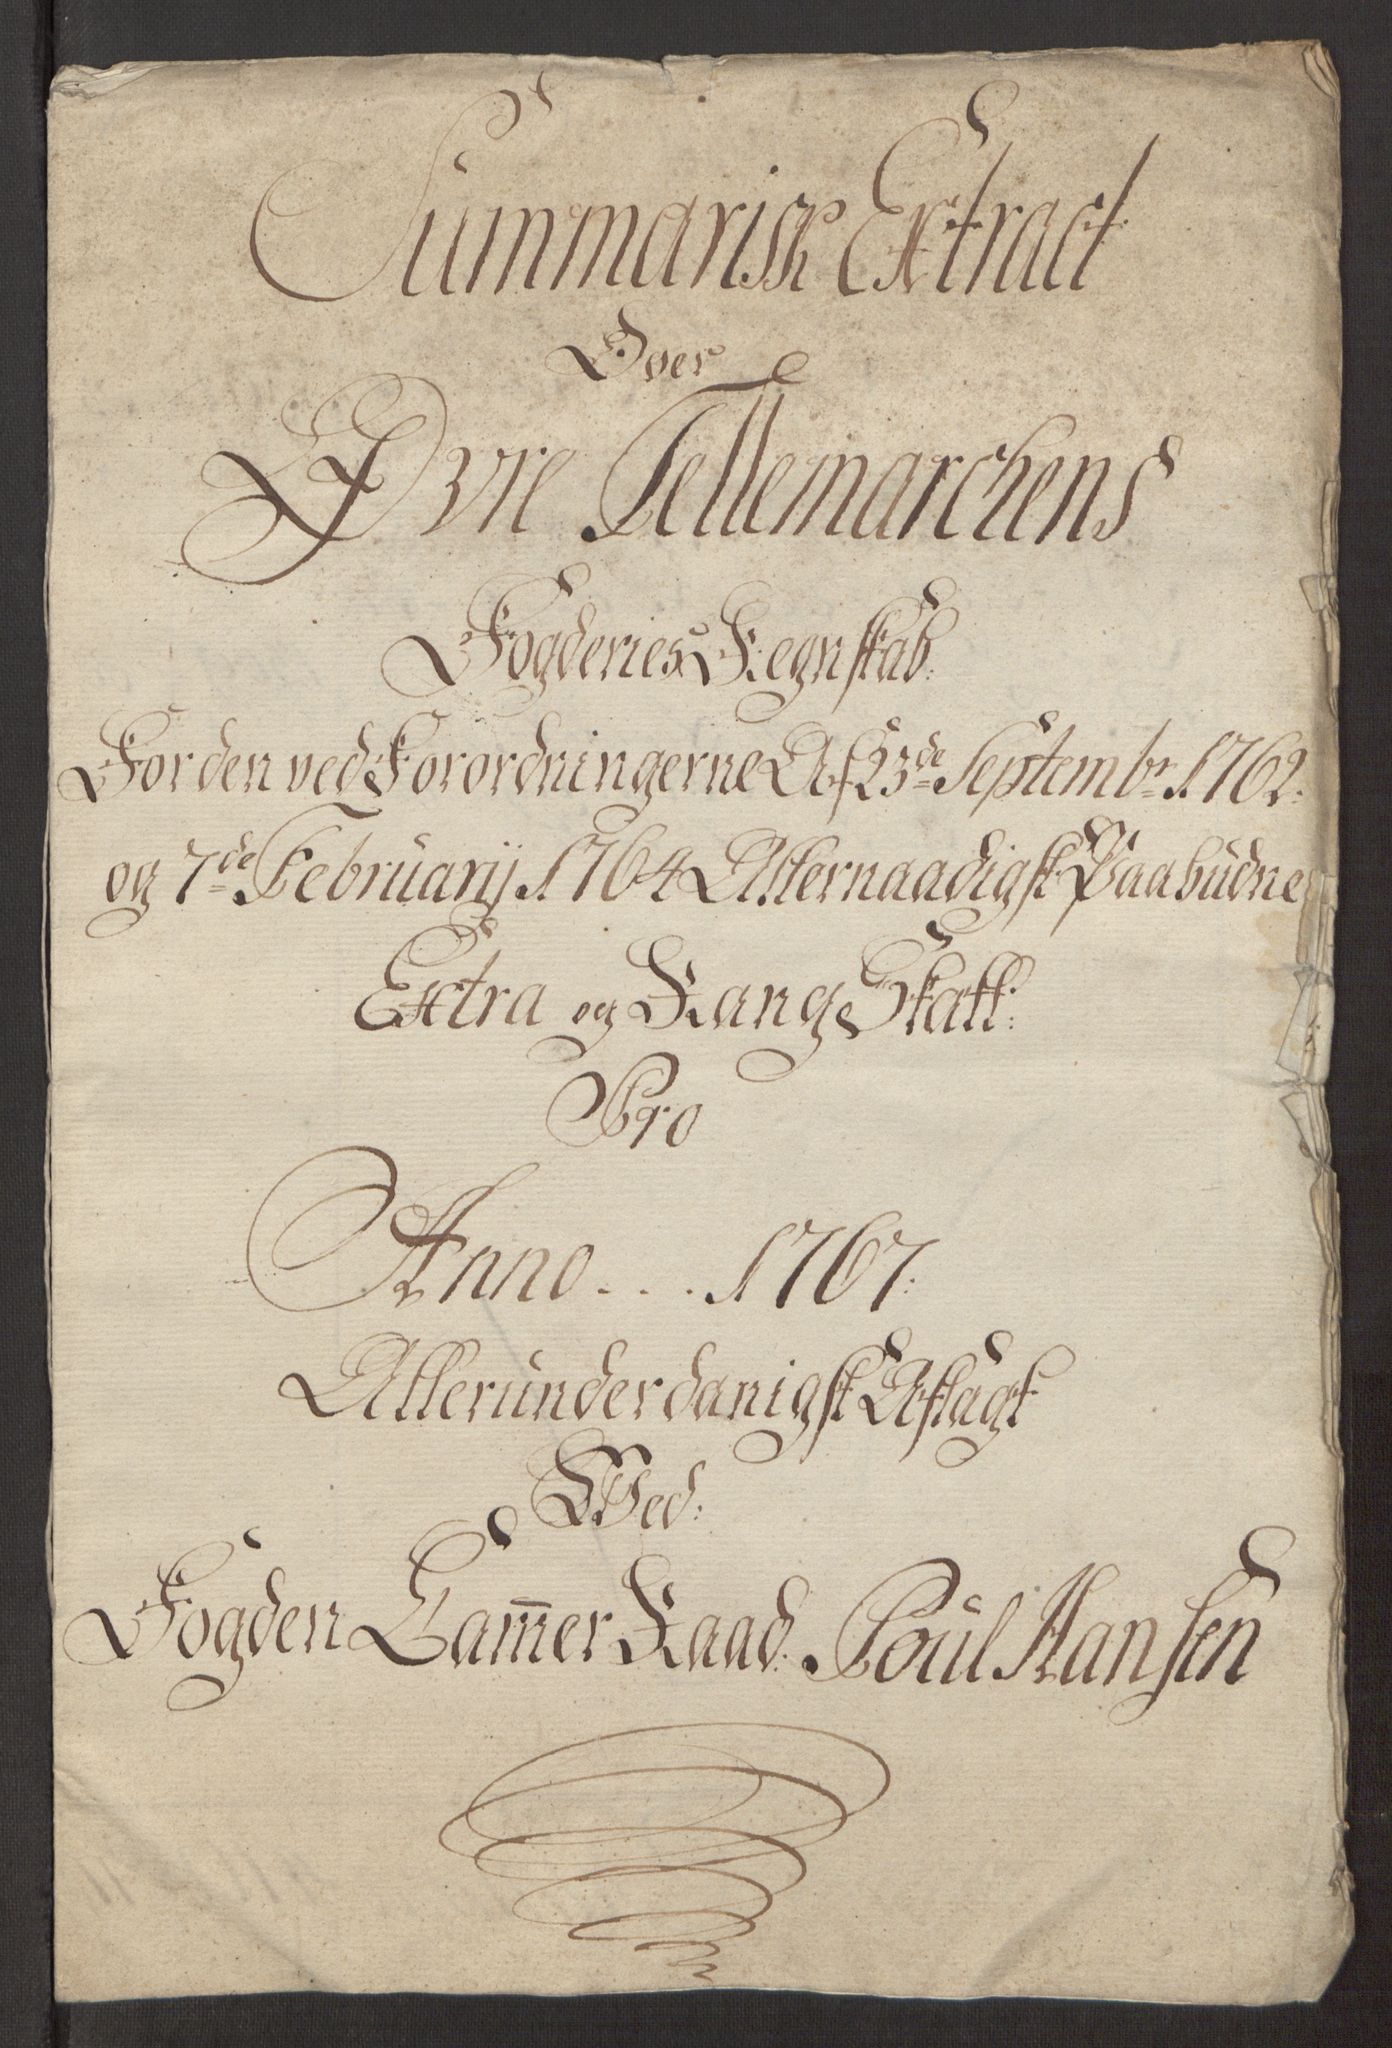 Summarisk Extract
Over
Øvre Tellemarchens
Fogderies Regnskab.
For den ved Forordningerne Af 23de Septembr. 1762.
og 7de Februarij 1764 Allernaadigst Paabudne
Extra og Rang Skatt.
Pro
Anno . . . 1767.
Allerunderdanigst Aflagt
Ved.
Fogden Cam̄er Raad. Poul Hansen